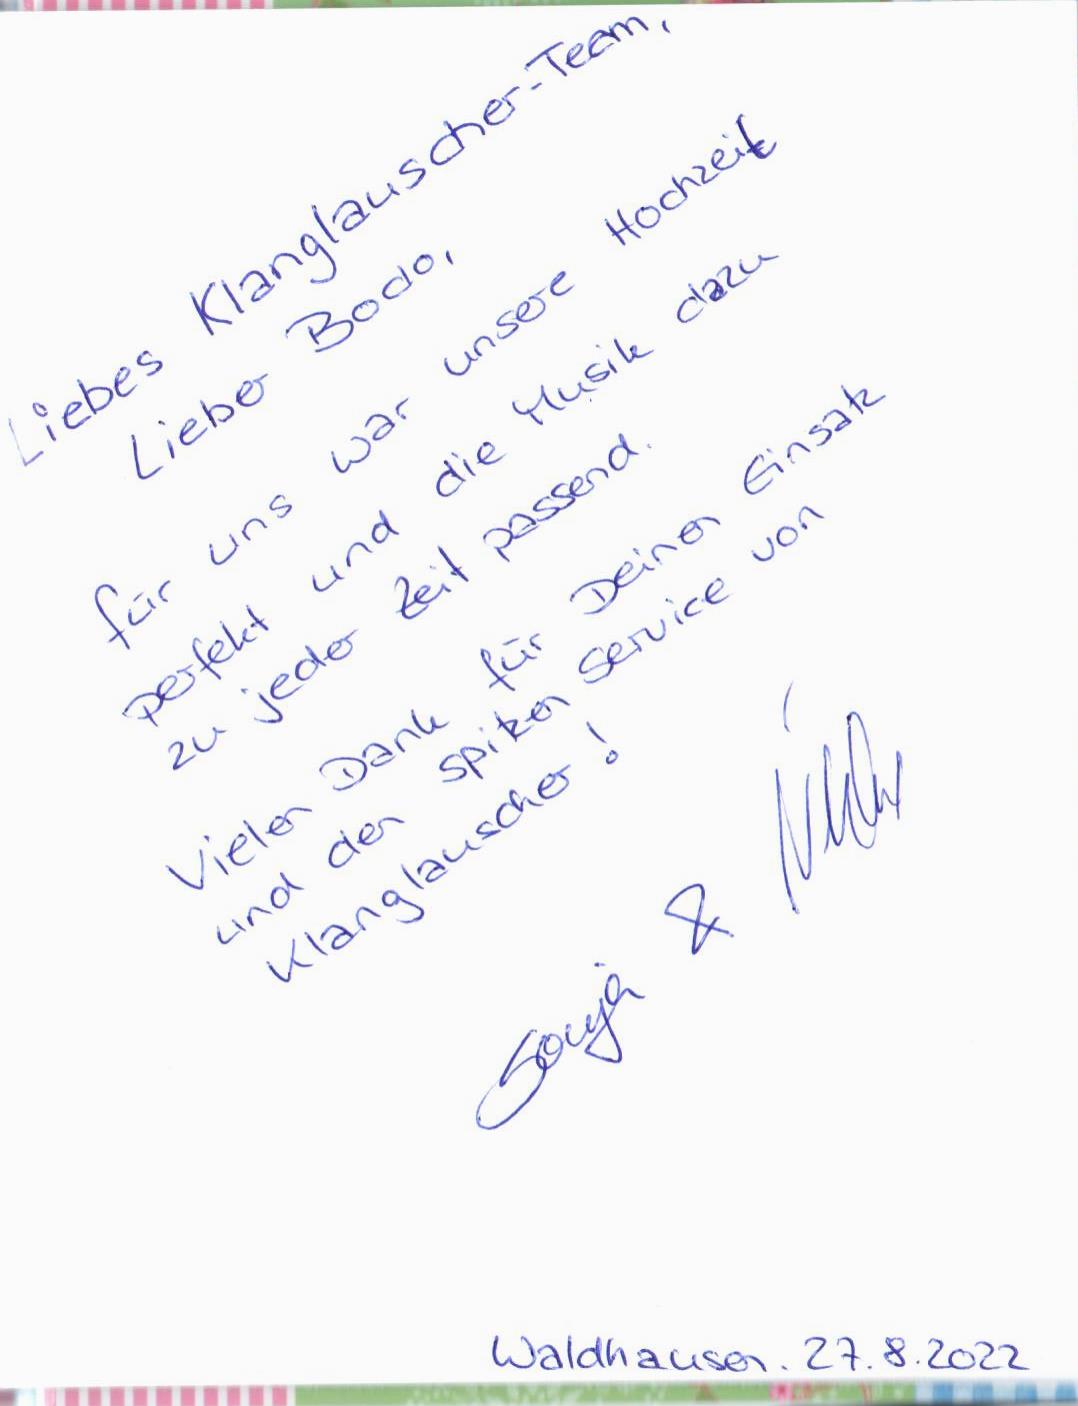 Liebes Klanglauscher-Team,
Lieber Bodo,
für uns war unsere Hochzeit
perfekt und die Musik dazu
zu jeder Zeit passend.
Vielen Dank für Deinen Einsatz
und den spitzen Service von
Klanglauscher!
Sonja &
Waldhausen. 27.8.2022